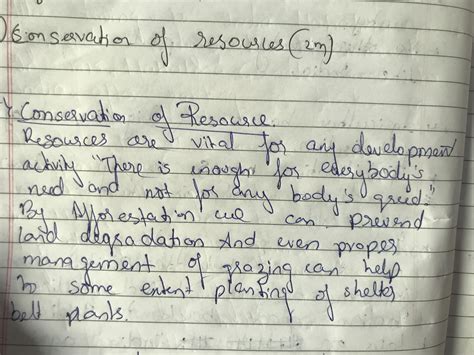 ) Conservation of resources (2m)
Conservation of Resource.
Resources are vital for any development
activity "There is enough for everybody's
need and not for any body's greed."
By Afforestation we can prevend
land degradation And even proper
management of grazing can help
to some extent planting of shelter
belt plants.